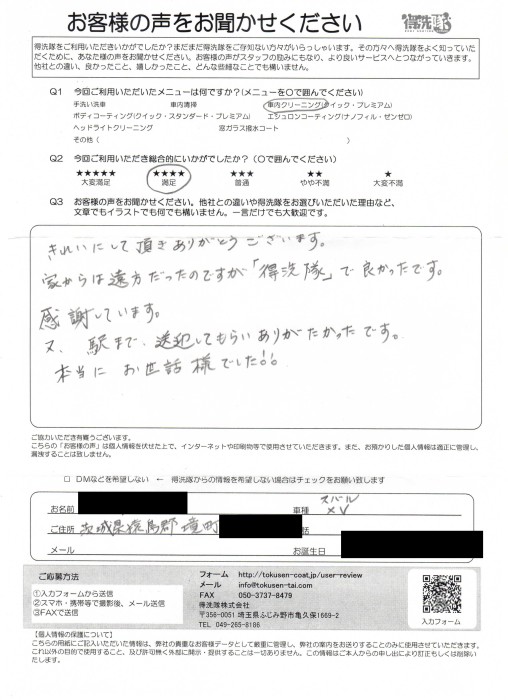 お客様の声をお聞かせください
得洗隊
得洗隊をご利用いただきいかがでしたか?まだまだ得洗隊をご存知ない方々がいらっしゃいます。その方々へ得洗隊をよく知っていた
だくために、あなた様の声をお聞かせください。お客様の声がスタッフの励みにもなり、より良いサービスへとつながっていきます。
他社との違い、良かったこと、嬉しかったこと、どんな些細なことでも構いません。
Q1 今回ご利用いただいたメニューは何ですか?(メニューを○で囲んでください)
手洗い洗車 車内清掃 車内クリーニング(クイック・プレミアム)
ボディコーティング(クイック・スタンダード・プレミアム) エシュロンコーティング(ナノフィル・ゼンゼロ)
ヘッドライトクリーニング 窓ガラス撥水コート
その他( )
Q2 今回ご利用いただき総合的にいかがでしたか?(○で囲んでください)
★★★★★ ★★★★ ★★★ ★★ ★
大変満足 満足 普通 やや不満 大変不満
Q3 お客様の声をお聞かせください。他社との違いや得洗隊をお選びいただいた理由など、
文章でもイラストでも何でも構いません。一言だけでも大歓迎です。
きれいにして頂きありがとうございます。
家からは遠方だったのですが「得洗隊」で良かったです。
感謝しています。
又、駅まで、送迎してもらいありがたかったです。
本当に お世話様でした!!
ご協力いただき有難うございます。
こちらの「お客様の声」は個人情報を伏せた上で、インターネットや印刷物等で使用させていただきます。また、お預かりした個人情報は適正に管理し、
漏洩することは致しません。
□ DMなどを希望しない ← 得洗隊からの情報を希望しない場合はチェックをお願い致します
お名前 車種 スバル
XV
ご住所 茨城県猿島郡境町 話
メール お誕生日
ご応募方法
①入力フォームから送信
②スマホ・携帯等で撮影後、メール送信
③FAXで送信
フォーム http://tokusen-coat.jp/user-review
メール info@tokusen-tai.com
FAX 050-3737-8479
得洗隊株式会社
〒356-0051 埼玉県ふじみ野市亀久保1669-2
TEL 049-265-8186
入力フォーム
【個人情報の保護について】
こちらの用紙にご記入いただいた情報は、弊社の貴重なお客様データとして厳重に管理し、弊社の案内をお送りすることのみに使用させていただきます。
これ以外の目的で使用すること、及び許可無く外部に開示・提供することは一切ありません。この情報はご本人からの申し出により訂正もしくは削除い
たします。